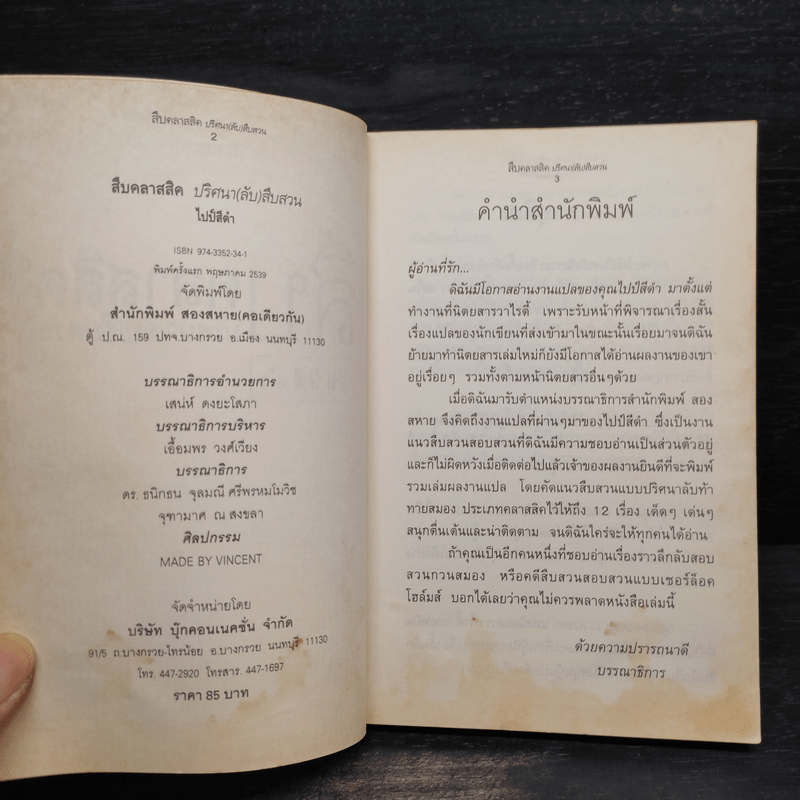 สืบคลาสสิค ปริศนา(ลับ)สืบสวน
2
สืบคลาสสิค ปริศนา(ลับ)สืบสวน
ไปป์สีดำ
ISBN 974-3352-34-1
พิมพ์ครั้งแรก พฤษภาคม 2539
จัดพิมพ์โดย
สำนักพิมพ์ สองสหาย(คอเดียวกัน)
ตู้ ป.ณ. 159 ปทจ.บางกรวย อ.เมือง นนทบุรี 11130
บรรณาธิการอำนวยการ
เสน่ห์ ดงยะโสภา
บรรณาธิการบริหาร
เอื้อมพร วงศ์เวียง
บรรณาธิการ
ดร. ธนิกธน จุลมณี ศรีพรหมโมวิช
จุฑามาศ ณ สงขลา
ศิลปกรรม
MADE BY VINCENT
จัดจำหน่ายโดย
บริษัท บุ๊กคอนเนคชั่น จำกัด
91/5 ถ.บางกรวย-ไทรน้อย อ.บางกรวย นนทบุรี 11130
โทร. 447-2920 โทรสาร. 447-1697
ราคา 85 บาท
สืบคลาสสิค ปริศนา(ลับ)สืบสวน
3
คำนำสำนักพิมพ์
ผู้อ่านที่รัก...
ดิฉันมีโอกาสอ่านงานแปลของคุณไปป์สีดำ มาตั้งแต่
ทำงานที่นิตยสารวาไรตี้ เพราะรับหน้าที่พิจารณาเรื่องสั้น
เรื่องแปลของนักเขียนที่ส่งเข้ามาในขณะนั้นเรื่อยมาจนดิฉัน
ย้ายมาทำนิตยสารเล่มใหม่ก็ยังมีโอกาสได้อ่านผลงานของเขา
อยู่เรื่อยๆ รวมทั้งตามหน้านิตยสารอื่นๆด้วย
เมื่อดิฉันมารับตำแหน่งบรรณาธิการสำนักพิมพ์ สอง
สหาย จึงคิดถึงงานแปลที่ผ่านๆมาของไปป์สีดำ ซึ่งเป็นงาน
แนวสืบสวนสอบสวนที่ดิฉันมีความชอบอ่านเป็นส่วนตัวอยู่
และก็ไม่ผิดหวังเมื่อติดต่อไปแล้วเจ้าของผลงานยินดีที่จะพิมพ์
รวมเล่มผลงานแปล โดยคัดแนวสืบสวนแบบปริศนาลับท้า
ทายสมอง ประเภทคลาสสิคไว้ให้ถึง 12 เรื่อง เด็ดๆ เด่นๆ
สนุกตื่นเต้นและน่าติดตาม จนดิฉันใคร่จะให้ทุกคนได้อ่าน
ถ้าคุณเป็นอีกคนหนึ่งที่ชอบอ่านเรื่องราวลึกลับสอบ
สวนกวนสมอง หรือคดีสืบสวนสอบสวนแบบเชอร์ล็อค
โฮล์มส์ บอกได้เลยว่าคุณไม่ควรพลาดหนังสือเล่มนี้
ด้วยความปรารถนาดี
บรรณาธิการ